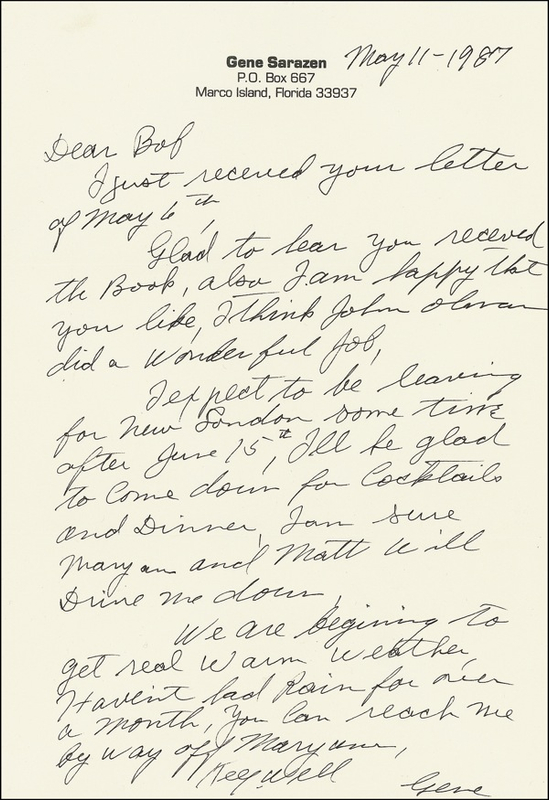 Gene Sarazen
May 11-1987
P.O. Box 667
Marco Island, Florida 33937
Dear Bob
I just received your letter
of May 6th,
Glad to hear you received
the Book, also I am happy that
you like, I think John Olman
did a wonderful job,
I expect to be leaving
for New London some time
after June 15th, I'll be glad
to Come down for Cocktails
and Dinner, I am sure
Maryann and Matt will
Drive me down,
We are begining to
get real Warm Weather,
Havent had Rain for over
a month, You Can reach me
by way off Maryann,
Keep Well
Gene